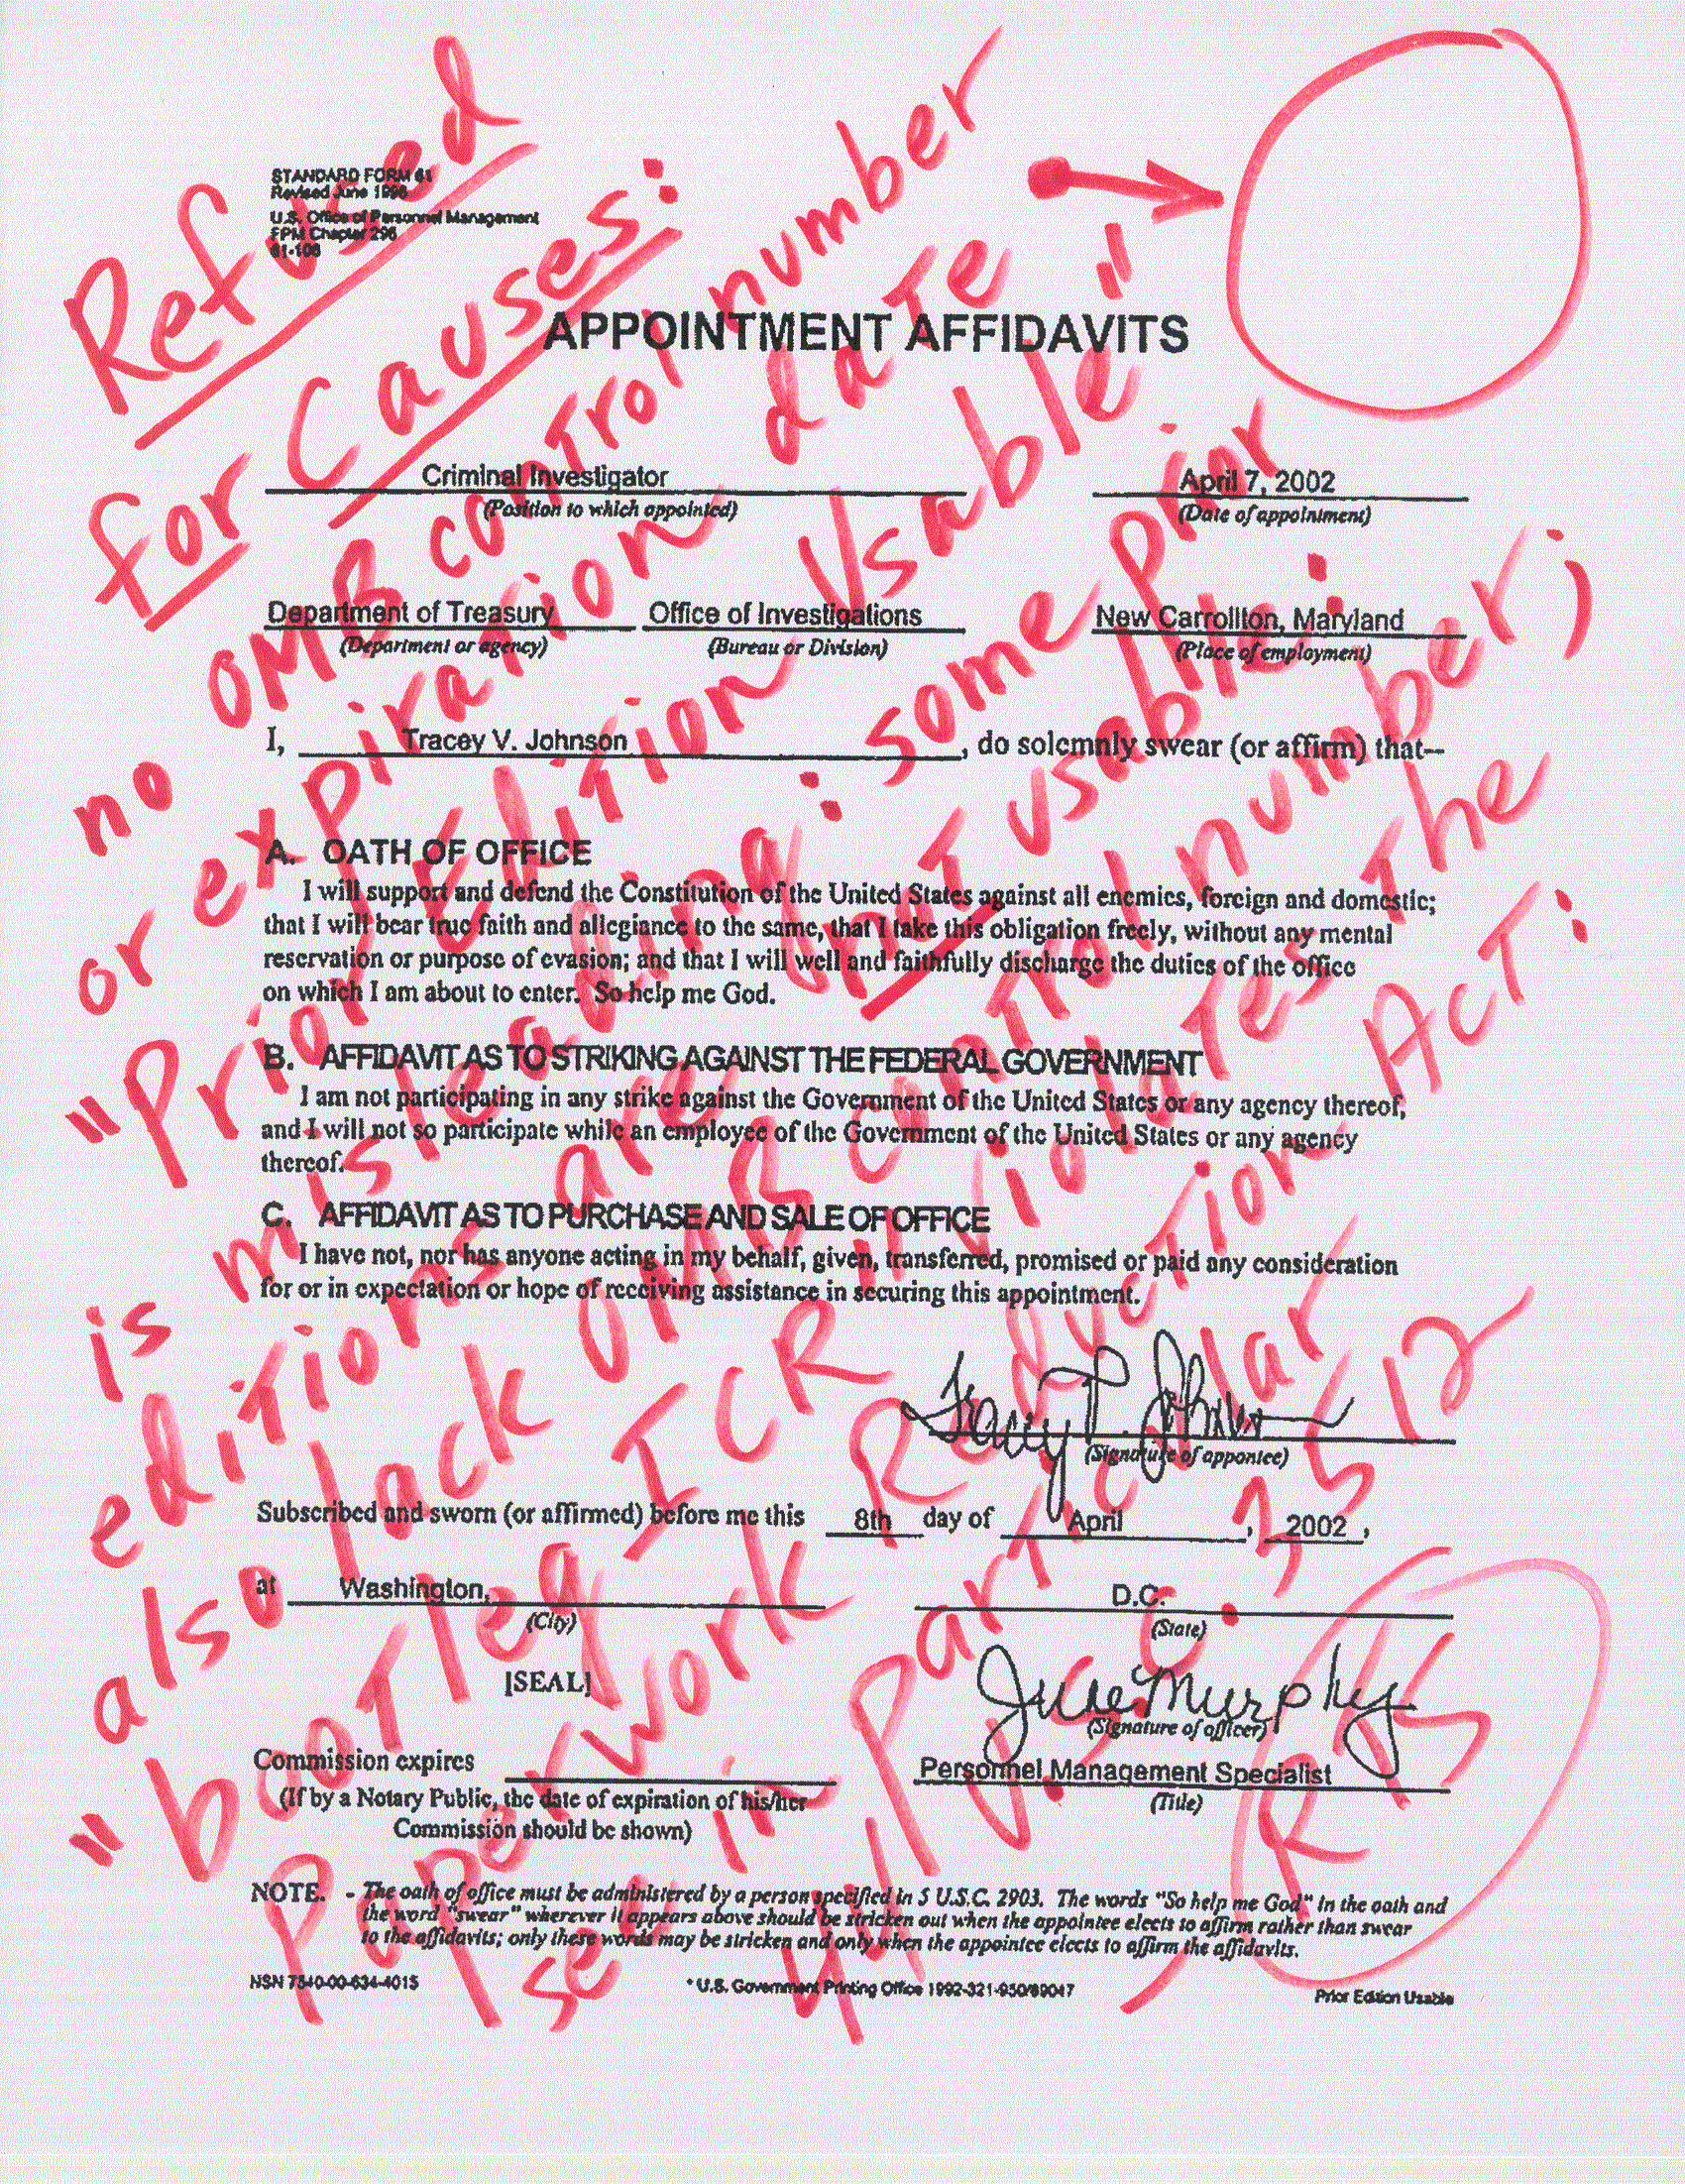 STANDARD FORM 61
Revised June 1996
U.S. Office of Personnel Management
FPM Chapter 296
61-108
APPOINTMENT AFFIDAVITS
Criminal Investigator
April 7, 2002
(Position to which appointed)
(Date of appointment)
Department of Treasury
Office of Investigations
New Carrollton, Maryland
(Department or agency)
(Bureau or Division)
(Place of employment)
I, Tracey V. Johnson, do solemnly swear (or affirm) that--
A. OATH OF OFFICE
I will support and defend the Constitution of the United States against all enemies, foreign and domestic;
that I will bear true faith and allegiance to the same, that I take this obligation freely, without any mental
reservation or purpose of evasion; and that I will well and faithfully discharge the duties of the office
on which I am about to enter. So help me God.
B. AFFIDAVIT AS TO STRIKING AGAINST THE FEDERAL GOVERNMENT
I am not participating in any strike against the Government of the United States or any agency thereof,
and I will not so participate while an employee of the Government of the United States or any agency
thereof.
C. AFFIDAVIT AS TO PURCHASE AND SALE OF OFFICE
I have not, nor has anyone acting in my behalf, given, transferred, promised or paid any consideration
for or in expectation or hope of receiving assistance in securing this appointment.
(Signature of appontee)
Subscribed and sworn (or affirmed) before me this 8th day of April, 2002,
at Washington, D.C.
(City)
(State)
[SEAL]
Julie Murphy
(Signature of officer)
Commission expires
Personnel Management Specialist
(If by a Notary Public, the date of expiration of his/her
(Title)
Commission should be shown)
NOTE. - The oath of office must be administered by a person specified in 5 U.S.C. 2903. The words "So help me God" in the oath and
the word "swear" wherever it appears above should be stricken out when the appointee elects to affirm rather than swear
to the affidavits; only these words may be stricken and only when the appointee elects to affirm the affidavits.
NSN 7540-00-634-4015
* U.S. Government Printing Office 1992-321-950/69047
Prior Edition Usable
Refused
for Causes:
no OMB control number
or expiration date
"Prior Edition Usable"
is misleading: some prior
editions are not usable:
also lack OMB control number;
"bootleg" ICR violates the
Paperwork Reduction Act:
see in particular
44 U.S.C. 3512